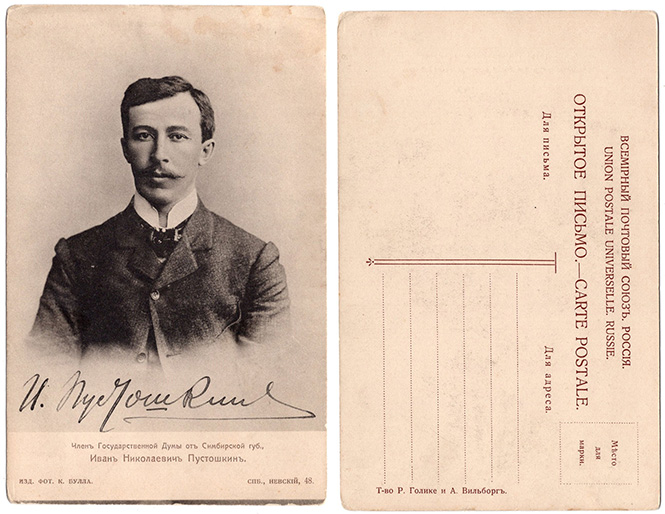 И. Пустошкин
Членъ Государственной Думы отъ Симбирской губ.,
Иванъ Николаевичъ Пустошкинъ.
ИЗД. ФОТ. К. БУЛЛА.
СПБ., НЕВСКІЙ, 48.
ВСЕМІРНЫЙ ПОЧТОВЫЙ СОЮЗЪ. РОССІЯ.
UNION POSTALE UNIVERSELLE. RUSSIE.
ОТКРЫТОЕ ПИСЬМО.—CARTE POSTALE.
Для письма.
Для адреса.
Мѣсто
для
марки.
Т-во Р. Голике и А. Вильборгъ.